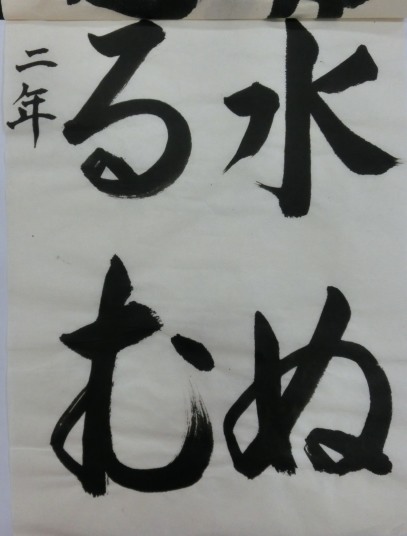 水ぬ
るむ
二年